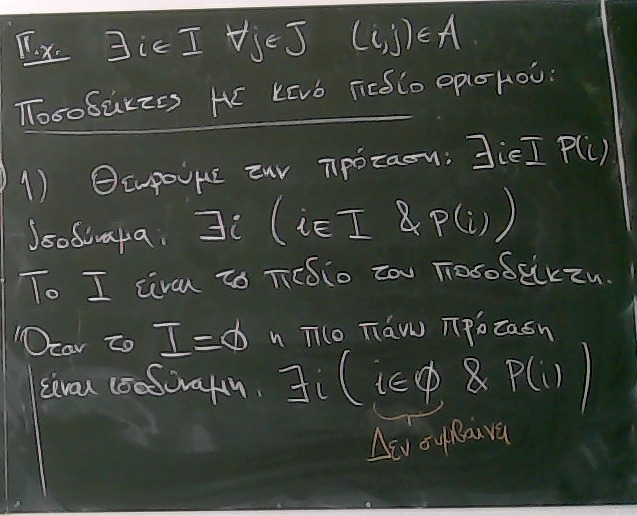 Π.χ. ∃i∈I ∀j∈J (i,j)∈A
Ποσοδείκτες με κενό πεδίο ορισμού:
1) Θεωρούμε την πρόταση: ∃i∈I P(i)
Ισοδύναμα: ∃i (i∈I & P(i))
Το I είναι το πεδίο του ποσοδείκτη.
Όταν το I=∅ η πιο πάνω πρόταση
είναι ισοδύναμη. ∃i (i∈∅ & P(i))
Δεν συμβαίνει